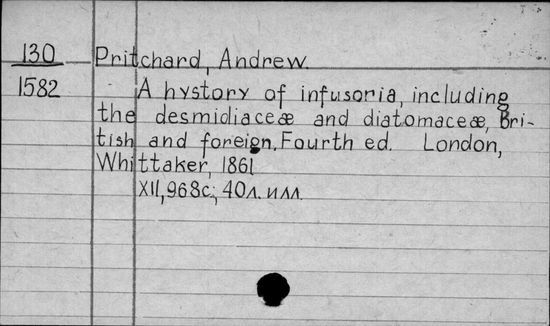 130 Pritchard, Andrew.
1582 A hystory of infusoria, including
the desmidiaceæ and diatomaceæ, Bri-
tish and foreign. Fourth ed. London,
Whittaker, 1861
XII, 968с., 40л. илл.